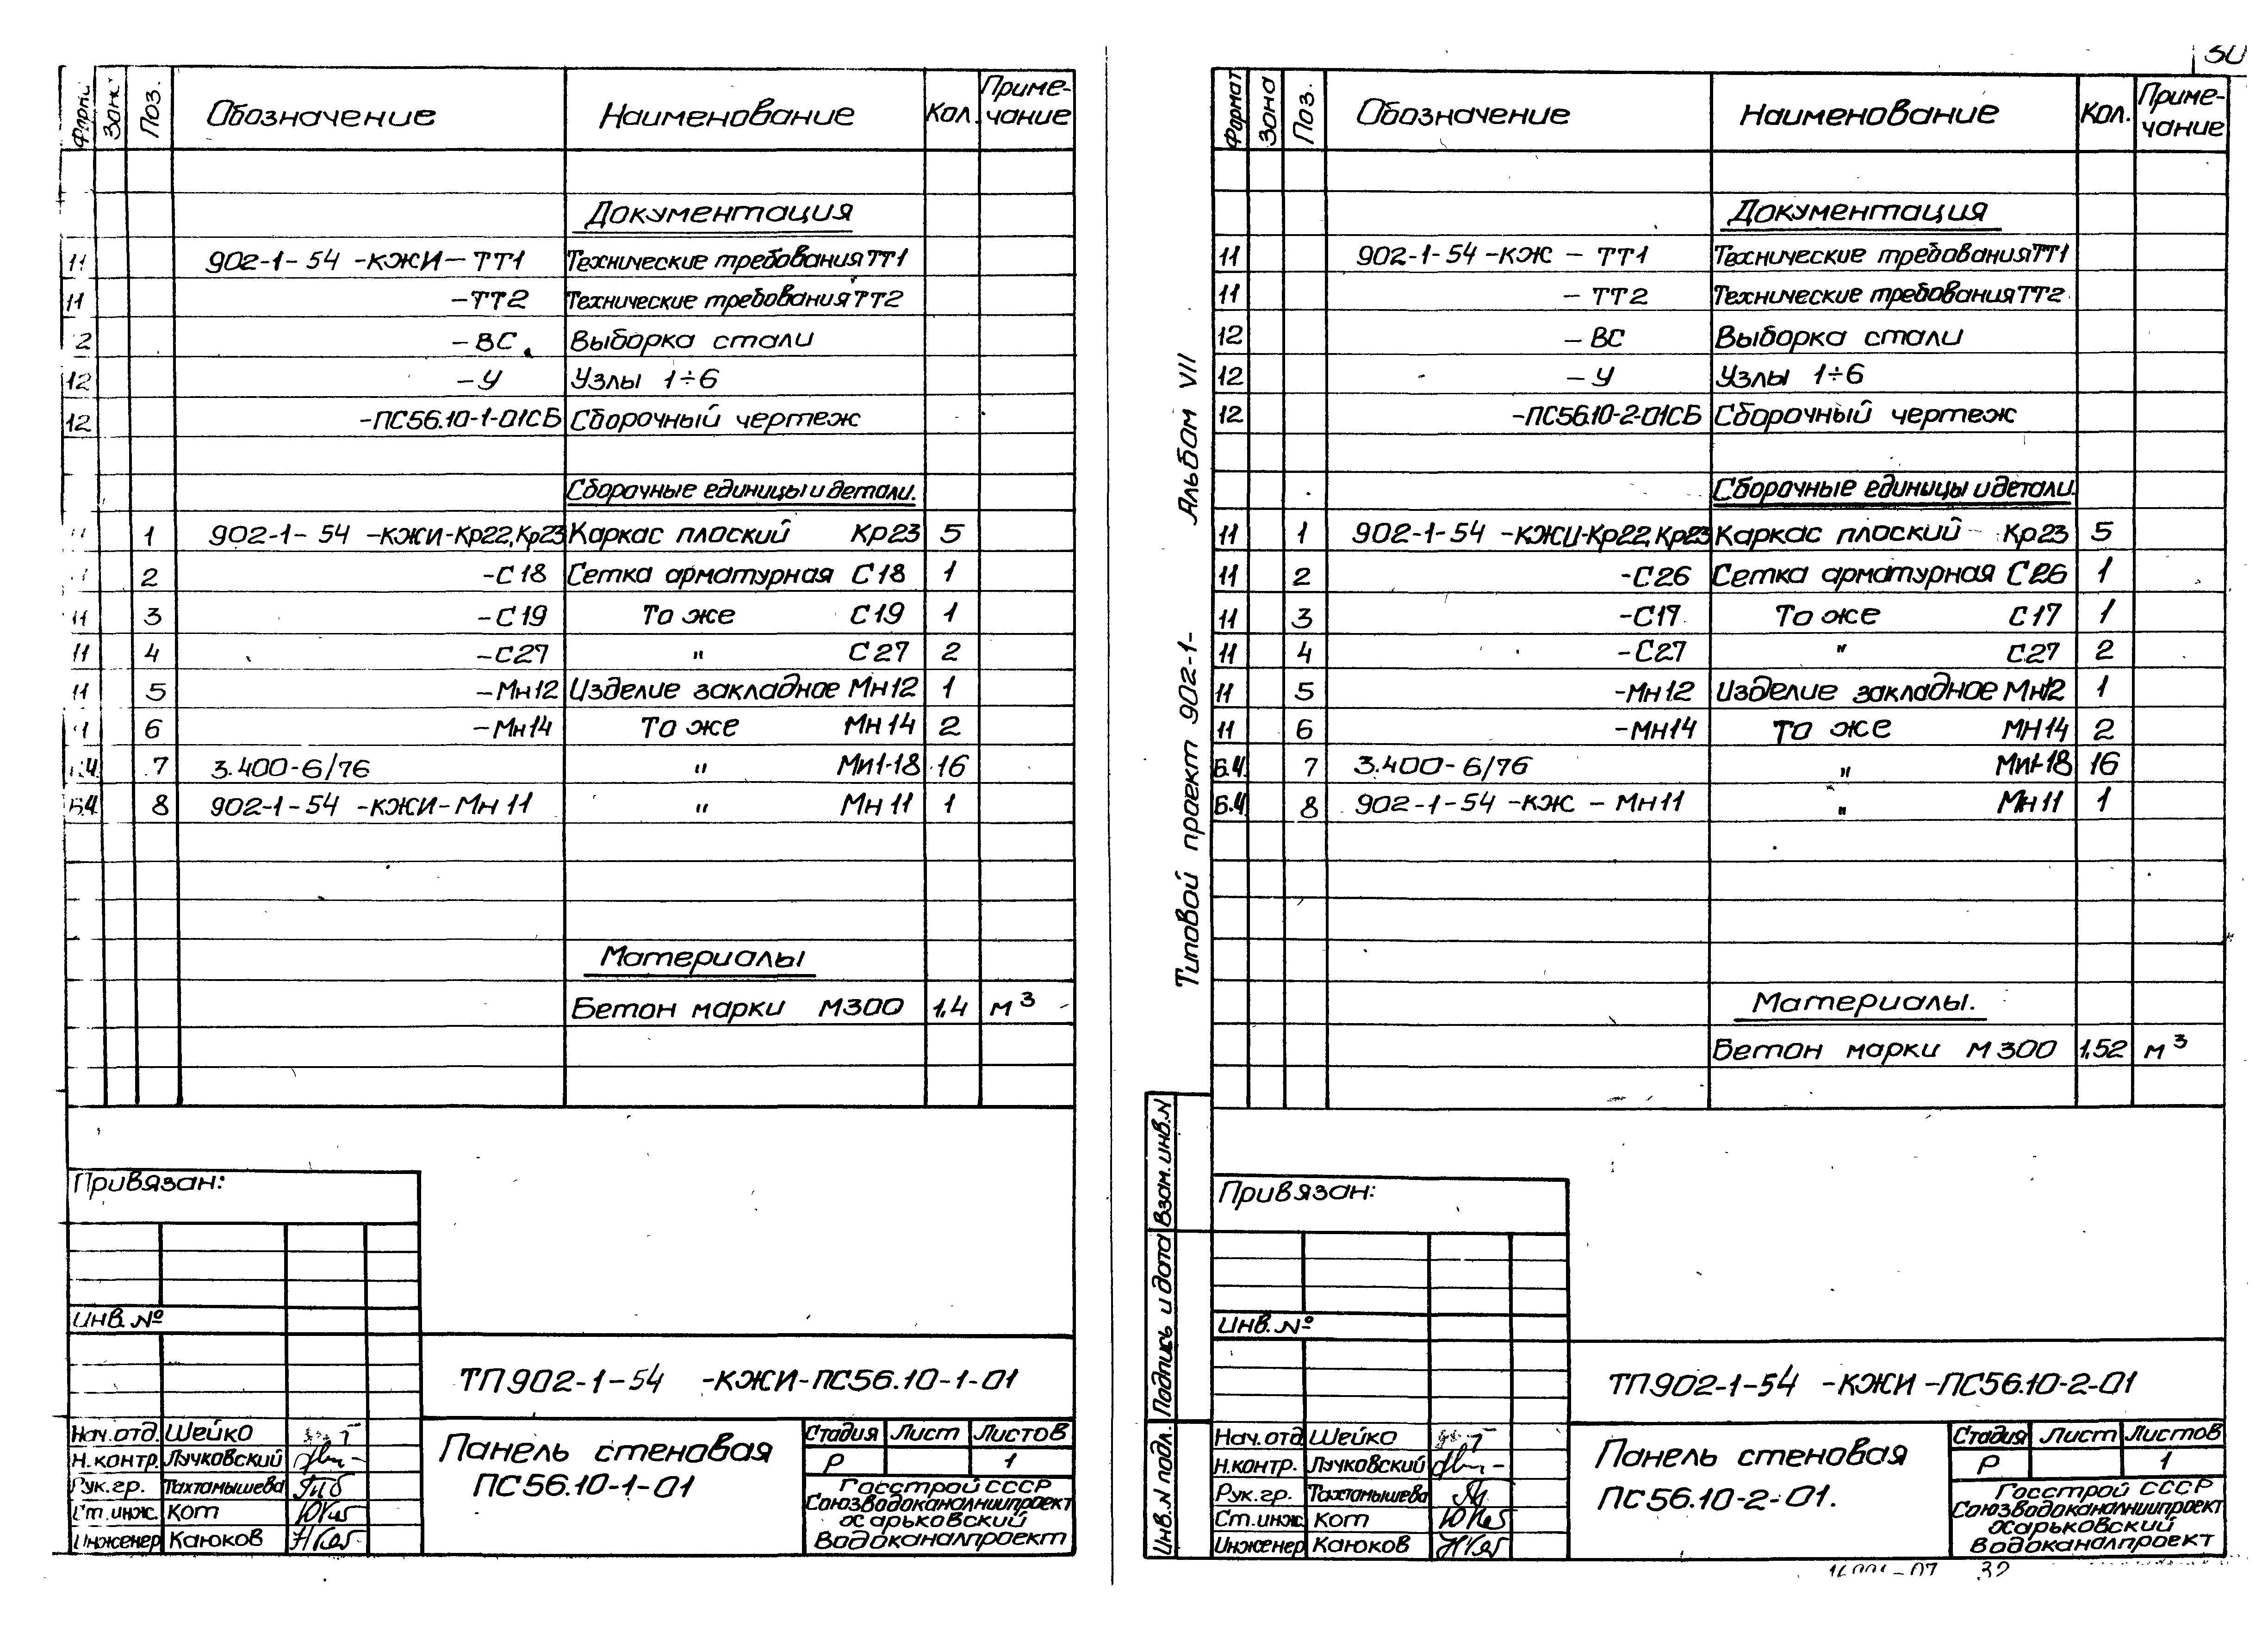 Зона Поз. Обозначение Наименование Кол. Приме-
чание
Документация
11 902-1-54 -КЖИ-ТТ1 Технические требования ТТ1
11 -ТТ2 Технические требования ТТ2
2 -ВС Выборка стали
12 -У Узлы 1÷6
12 -ПС56.10-1-01СБ Сборочный чертеж
Сборочные единицы и детали.
1 902-1-54 -КЖИ-Кр22,Кр23 Каркас плоский Кр23 5
2 -С18 Сетка арматурная С18 1
11 3 -С19 То же С19 1
11 4 -С27 " С27 2
11 5 -Мн12 Изделие закладное Мн12 1
6 -Мн14 То же Мн14 2
7 3.400-6/76 " Ми1-18 16
Б.Ч 8 902-1-54 -КЖИ-Мн11 " Мн11 1
Материалы
Бетон марки М300 1,4 м³
Привязан:
Инв.№
ТП902-1-54 -КЖИ-ПС56.10-1-01
Нач.отд. Шейко
Н.контр. Лучковский
Рук.гр. Тахтамышева
Ст.инж. Кот
Инженер Каюков
Панель стеновая
ПС56.10-1-01
Стадия Лист Листов
Р 1
Госстрой СССР
Союзводоканалниипроект
Харьковский
Водоканалпроект
Альбом VII
Типовой проект 902-1-
Формат Зона Поз. Обозначение Наименование Кол. Приме-
чание
Документация
11 902-1-54 -КЖ - ТТ1 Технические требования ТТ1
11 - ТТ2 Технические требования ТТ2
12 - ВС Выборка стали
12 - У Узлы 1÷6
12 -ПС56.10-2-01СБ Сборочный чертеж
Сборочные единицы и детали.
11 1 902-1-54 -КЖИ-Кр22,Кр23 Каркас плоский Кр23 5
11 2 -С26 Сетка арматурная С26 1
11 3 -С17 То же С17 1
11 4 -С27 " С27 2
11 5 -Мн12 Изделие закладное Мн12 1
11 6 -Мн14 То же Мн14 2
Б.Ч. 7 3.400-6/76 " Ми1-18 16
Б.Ч. 8 902-1-54 -КЖ - Мн11 " Мн11 1
Материалы.
Бетон марки М300 1,52 м³
Взам.инв.N
Подпись и дата
Инв.N подл.
Привязан:
Инв.№
ТП902-1-54 -КЖИ-ПС56.10-2-01
Нач.отд Шейко
Н.контр. Лучковский
Рук.гр. Тахтамышева
Ст.инж. Кот
Инженер Каюков
Панель стеновая
ПС56.10-2-01.
Стадия Лист Листов
Р 1
Госстрой СССР
Союзводоканалниипроект
Харьковский
Водоканалпроект
32